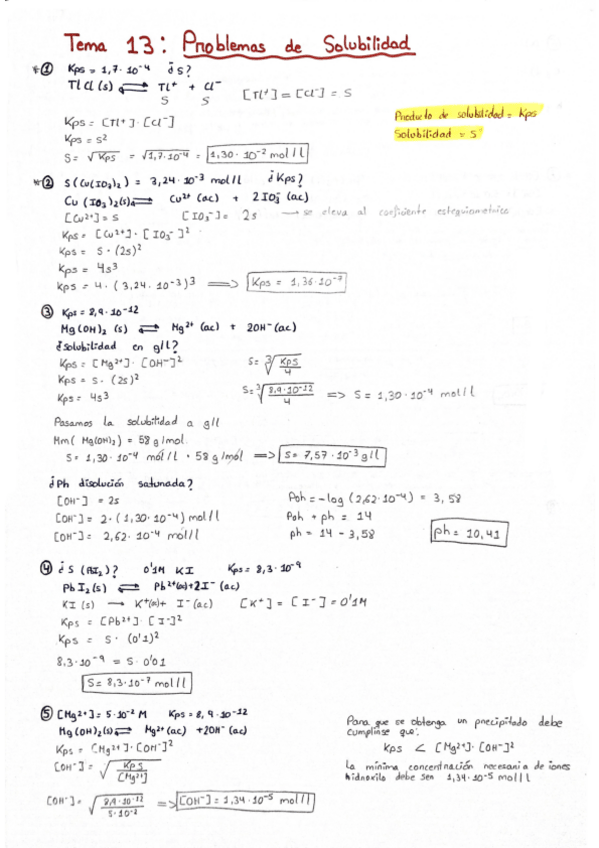 Tema 13: Problemas de Solubilidad
*① Kps = 1,7·10⁻⁴ ¿S?
TlCl (s) ⇌ Tl⁺ + Cl⁻
S S [Tl⁺] = [Cl⁻] = S
Kps = [Tl⁺]·[Cl⁻]
Kps = S²
S = √Kps = √1,7·10⁻⁴ = 1,30·10⁻² mol/l
Producto de solubilidad = Kps
Solubilidad = S
*② S(Cu(IO₃)₂) = 3,24·10⁻³ mol/l ¿Kps?
Cu(IO₃)₂(s) ⇌ Cu²⁺ (ac) + 2IO₃⁻ (ac)
[Cu²⁺] = S [IO₃⁻] = 2s → se eleva al coeficiente estequiometrico
Kps = [Cu²⁺]·[IO₃⁻]²
Kps = S·(2s)²
Kps = 4s³
Kps = 4·(3,24·10⁻³)³ ⟹ Kps = 1,36·10⁻⁷
③ Kps = 8,9·10⁻¹²
Mg(OH)₂ (s) ⇌ Mg²⁺ (ac) + 2OH⁻ (ac)
¿solubilidad en g/l?
Kps = [Mg²⁺]·[OH⁻]² S = ∛(Kps/4)
Kps = S·(2s)²
Kps = 4s³ S = ∛(8,9·10⁻¹²/4) ⟹ S = 1,30·10⁻⁴ mol/l
Pasamos la solubilidad a g/l
Mm(Mg(OH)₂) = 58 g/mol.
S = 1,30·10⁻⁴ mol/l · 58 g/mol ⟹ S = 7,57·10⁻³ g/l
¿Ph disolución saturada?
[OH⁻] = 2s Poh = -log (2,62·10⁻⁴) = 3,58
[OH⁻] = 2·(1,30·10⁻⁴) mol/l Poh + ph = 14
[OH⁻] = 2,62·10⁻⁴ mol/l ph = 14 - 3,58 ph = 10,41
④ ¿S (PbI₂)? 0'1M KI Kps = 8,3·10⁻⁹
PbI₂(s) ⇌ Pb²⁺(ac) + 2I⁻ (ac)
KI (s) → K⁺(ac) + I⁻ (ac) [K⁺] = [I⁻] = 0'1M
Kps = [Pb²⁺]·[I⁻]²
Kps = S·(0'1)²
8,3·10⁻⁹ = S·0'01
S = 8,3·10⁻⁷ mol/l
⑤ [Mg²⁺] = 5·10⁻² M Kps = 8,9·10⁻¹²
Mg(OH)₂(s) ⇌ Mg²⁺(ac) + 2OH⁻(ac)
Kps = [Mg²⁺]·[OH⁻]²
[OH⁻] = √(Kps/[Mg²⁺])
[OH⁻] = √(8,9·10⁻¹²/5·10⁻²) ⟹ [OH⁻] = 1,34·10⁻⁵ mol/l
Para que se obtenga un precipitado debe
cumplirse que:
Kps < [Mg²⁺]·[OH⁻]²
la mínima concentración necesaria de iones
hidroxilo debe ser 1,34·10⁻⁵ mol/l